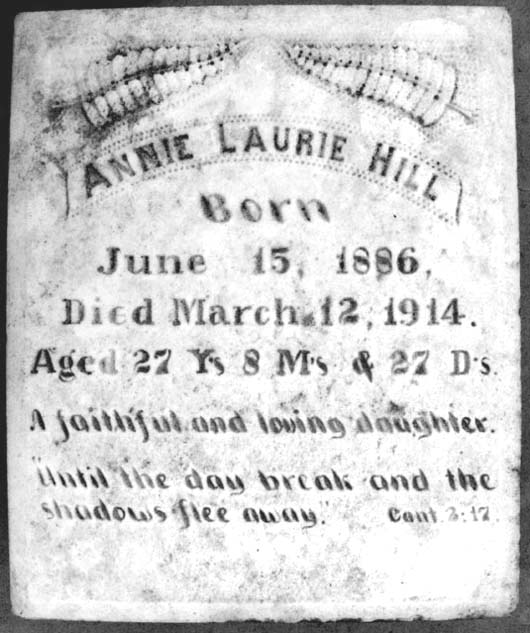 ANNIE LAURIE HILL
Born
June 15, 1886,
Died March 12, 1914.
Aged 27 Ys 8 M's & 27 D's.
A faithful and loving daughter.
"Until the day break and the
shadows flee away." Cant. 2:17.